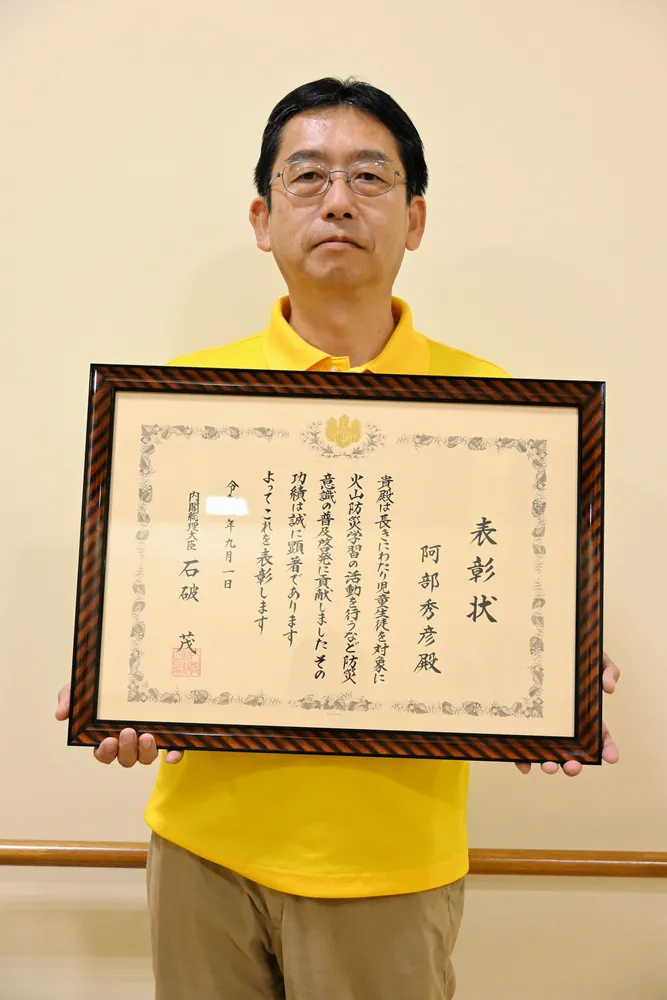 表彰状
阿部秀彦殿
貴殿は長きにわたり児童生徒を対象に
火山防災学習の活動を行うなど防災
意識の普及啓発に貢献しました その
功績は誠に顕著であります
よってこれを表彰します
令 年九月一日
内閣総理大臣 石破 茂